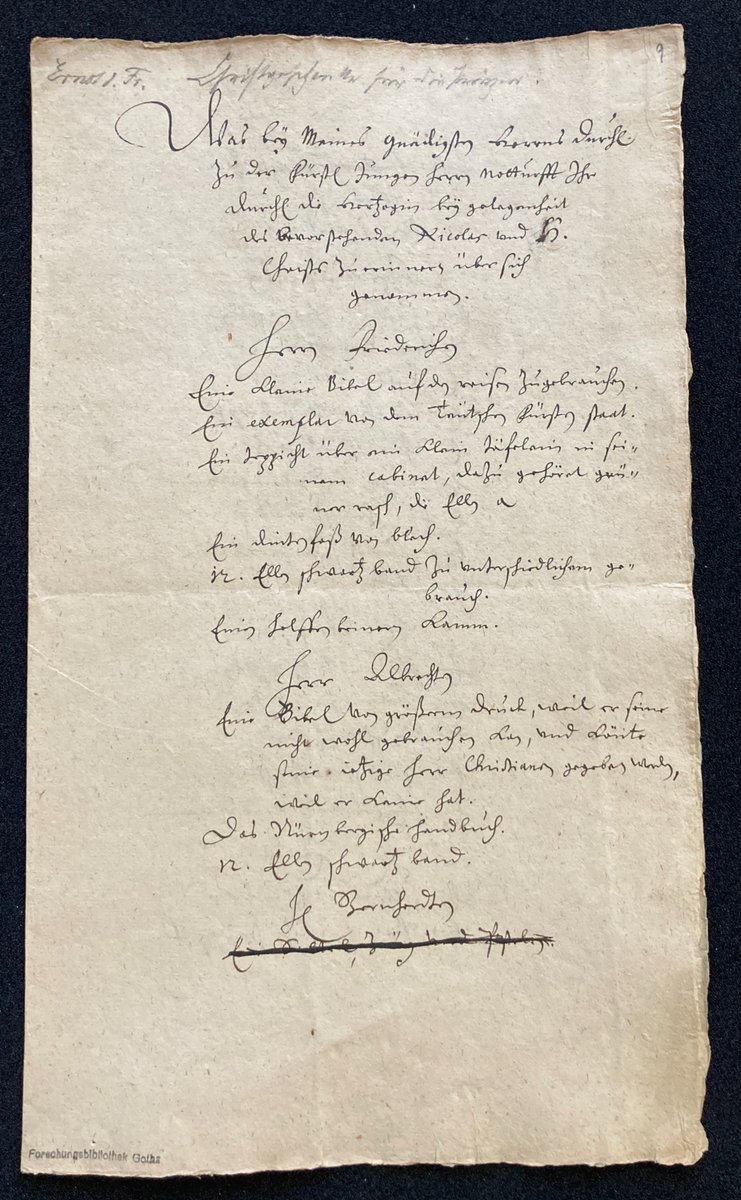 9
Ernst d. Fr. Christgeschenke für die Prinzen.
Was bey Meines Gnädigsten Herrns Durchl.
Zu der fürstl Jungen Herrn notturfft Ihr
Durchl die Hertzogin bey gelegenheit
des bevorstehenden Nicolas und H.
Christs Zuerinnern über sich
genommen.
Herrn Friederichen
Eine kleine Bibel auf den reisen Zugebrauchen.
Ein exemplar von dem Teütschen fürsten staat.
Ein teppicht über ein klein täfelein in sei-
nem cabinet, dazu gehöret grü-
ner rasch, die Elln a
Ein dintenfaß von blech.
12. Elln schwartz band Zu unterschiedlichem ge-
brauch.
Einen helffenbeinern Kamm.
Herr Albrechten
Eine Bibel von größerm druck, weil er seine
nicht wohl gebrauchen kan, und könte
seine ietzige Herr Christianen gegeben werden,
weil er keine hat.
Das Nürnbergische handbuch.
12. Elln schwartz band.
H Bernhardten
Forschungsbibliothek Gotha